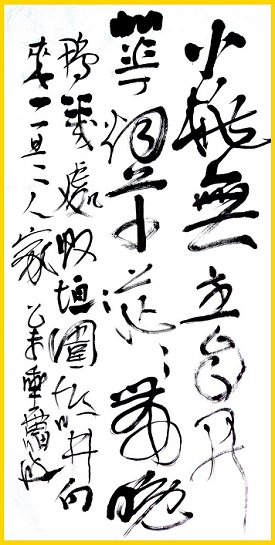 小桃無主自開
花烟草茫々帶晚
鴉幾處敗垣圍故井向
來一一是人家 乙未